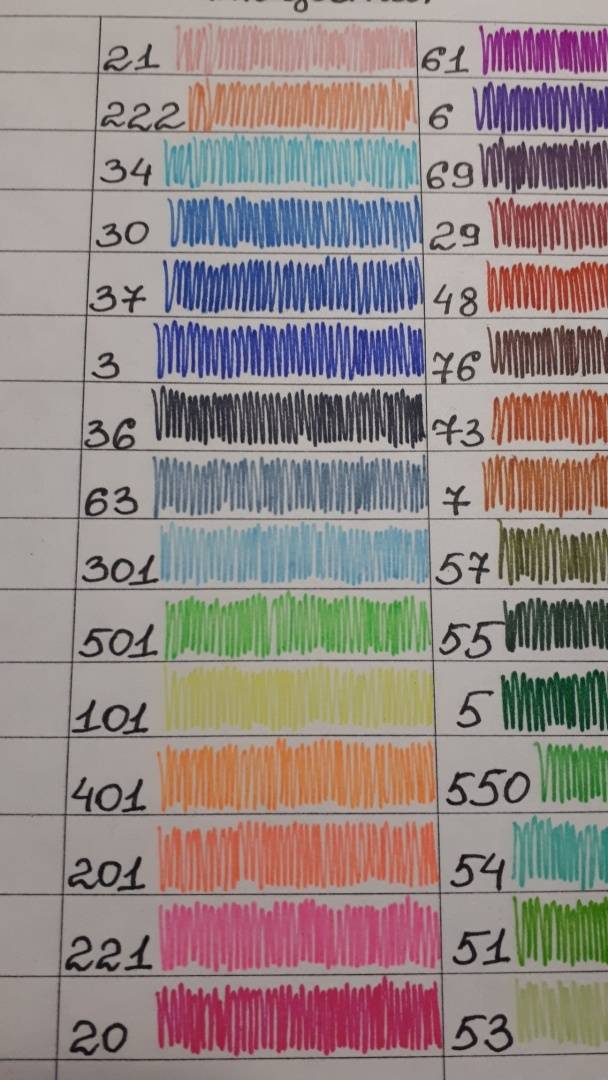 21 61
222 6
34 69
30 29
37 48
3 76
36 73
63 7
301 57
501 55
101 5
401 550
201 54
221 51
20 53